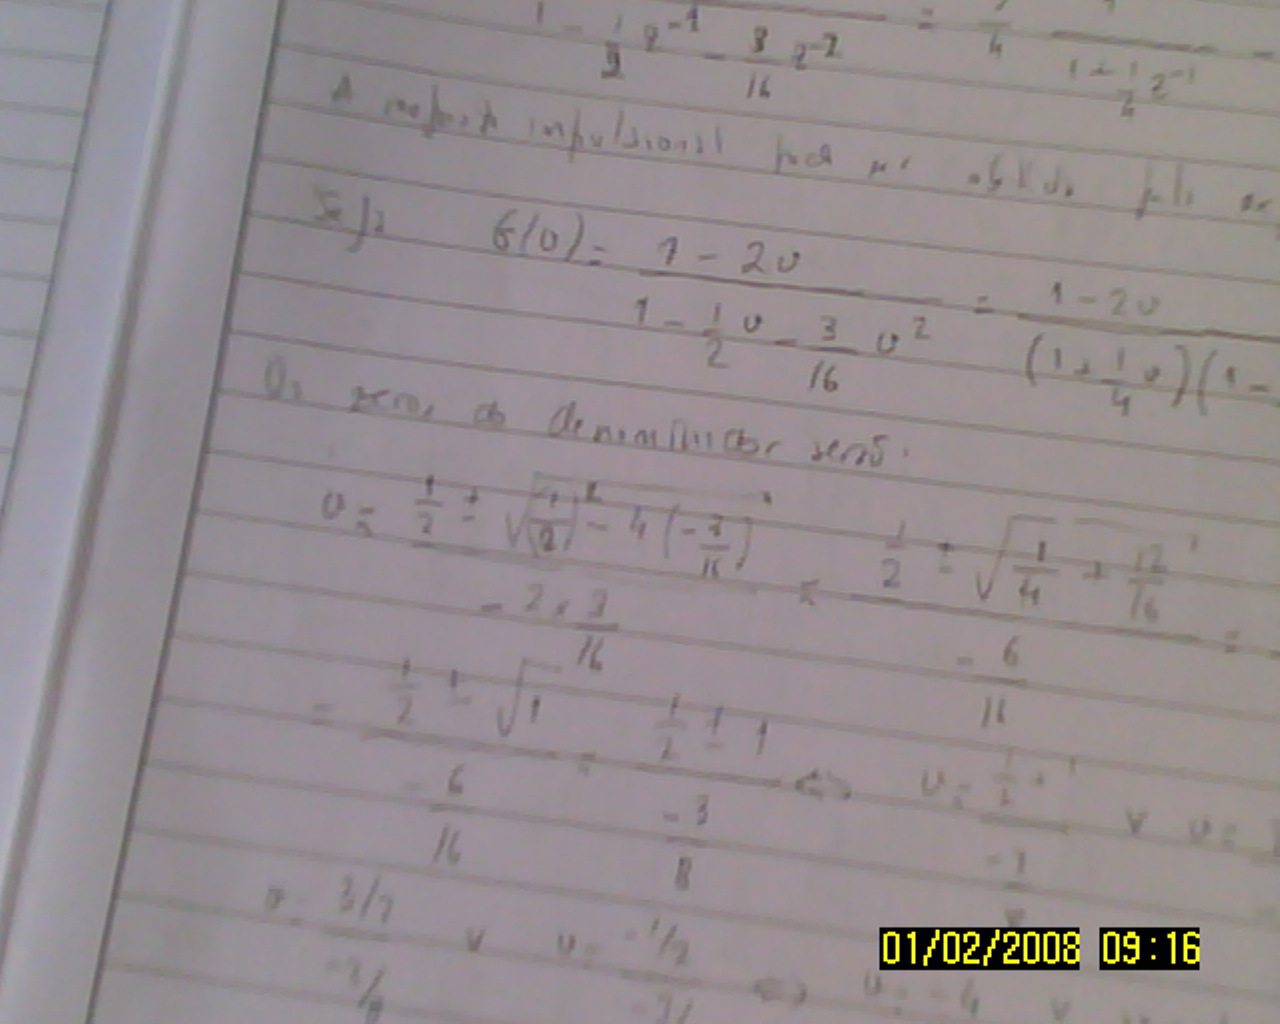 1 - 1/2 z^-1 - 3/16 z^-2 = 1/4 1 + 1/4 z^-1
A impulsional pode ser obtida pela
Seja G(v) = (1 - 2v) / (1 - 1/2 v - 3/16 v^2) = (1 - 2v) / ((1 + 1/4 v)(1 -
Os zeros do denominador serão:
v = (1/2 ± √((1/2)^2 - 4(-3/16))) / (-2 × 3/16) = (1/2 ± √(1/4 + 12/16)) / (-6/16) =
= (1/2 ± √1) / (-6/16) = (1/2 ± 1) / (-3/8) ⇔ v = (1/2 + 1) / (-3/8) ∨ v =
v = (3/2) / (-3/8) ∨ v = (-1/2) / ⇔ v = -4 ∨
01/02/2008 09:16